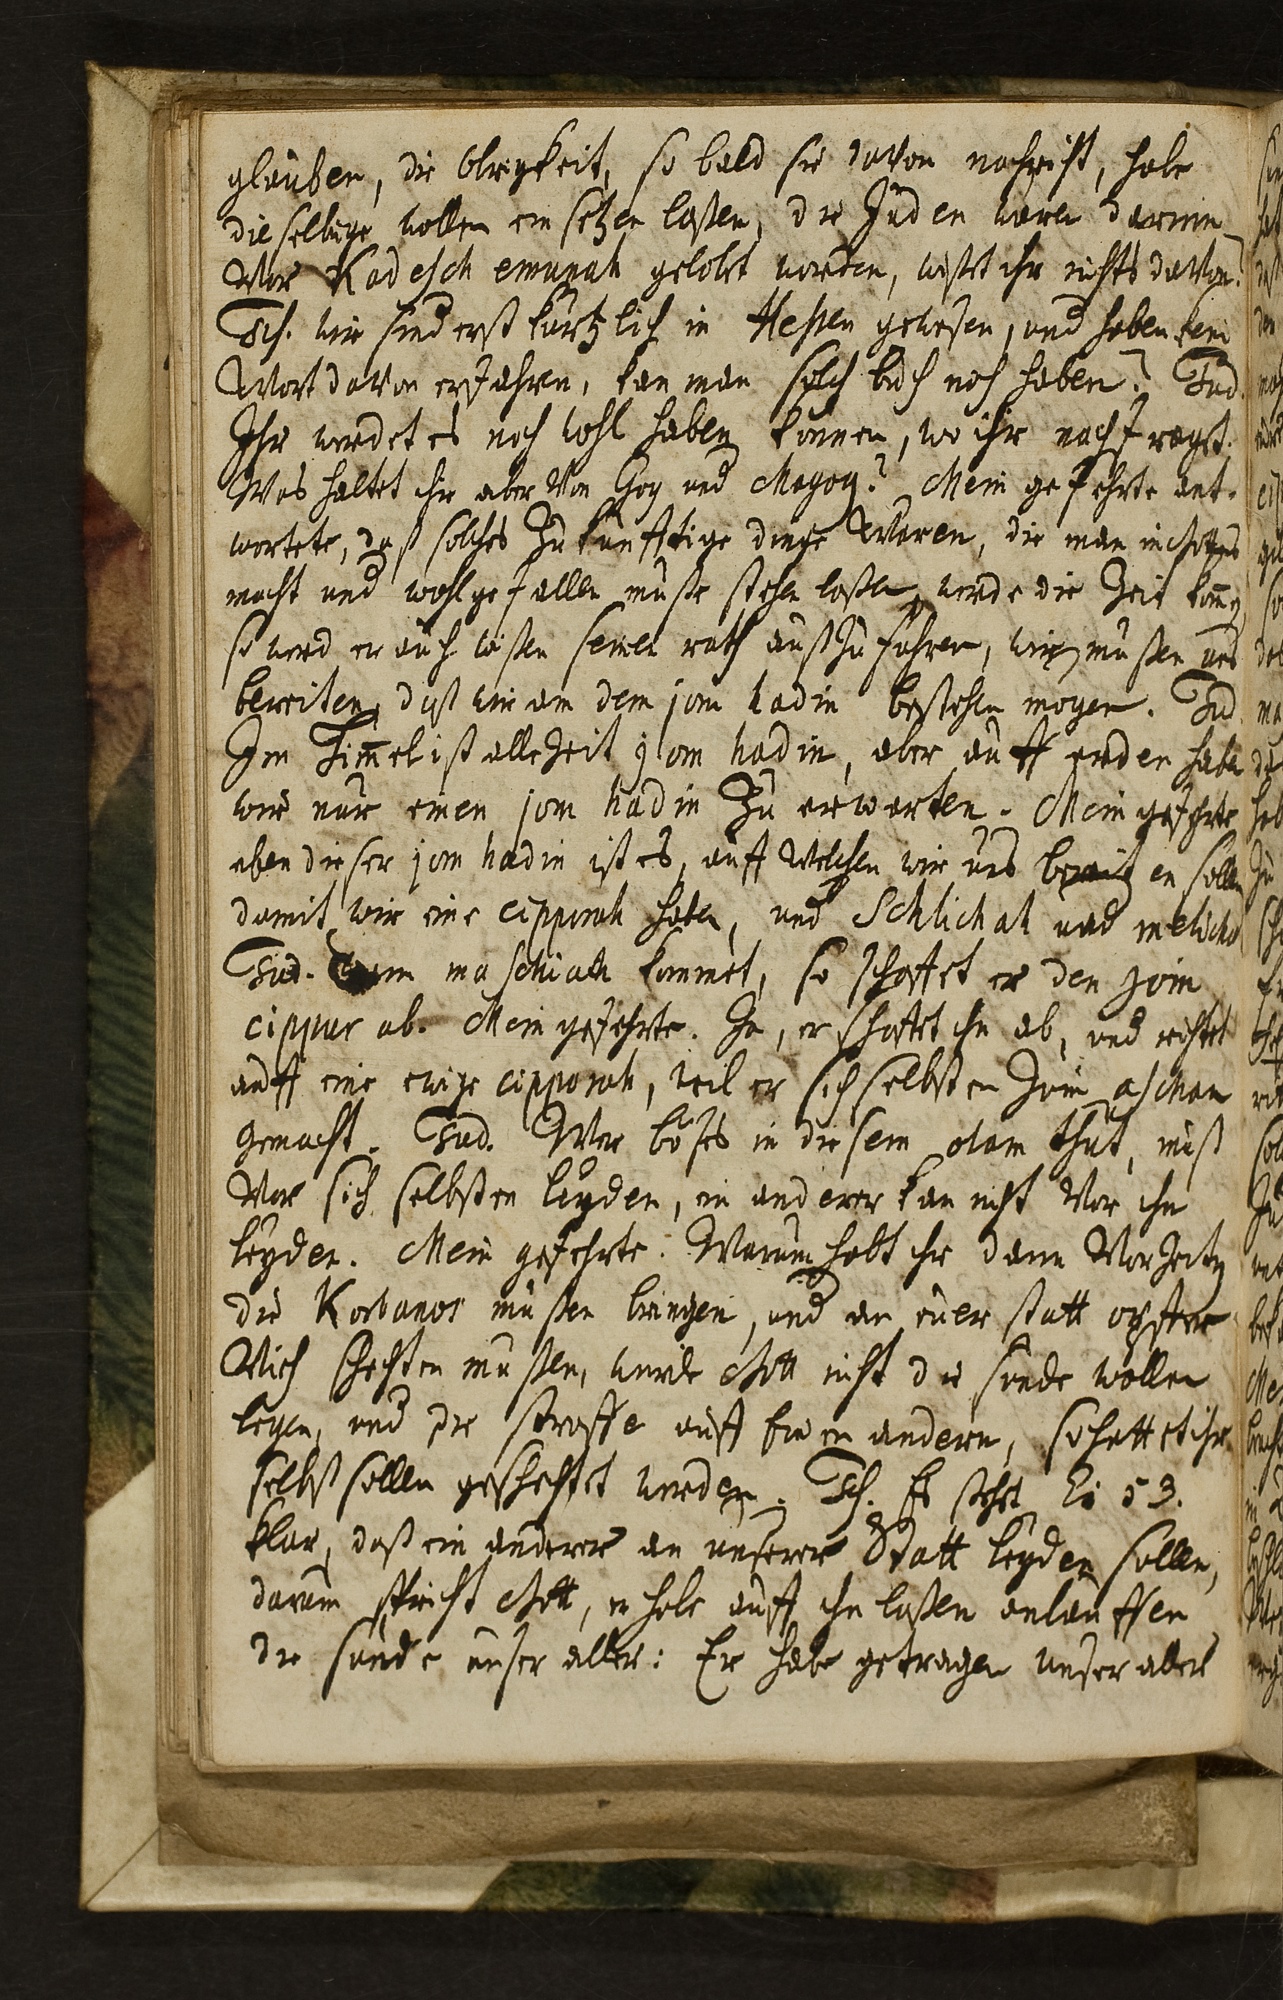 glauben, die Obrigkeit, so bald sie davon nachricht, habe
dieselbige wollen einsetzen laßen, die Juden wären darinn
Vor Kadesch emunah gelobt worden, wißet ihr nichts davon?
Ich. wir sind erst kürtzlich in Heßen gewesen, und haben kein
Wort davon erfahren, kan man solch buch noch haben? Jud.
Ihr werdet es noch wohl haben können, wo ihr nachfraget.
Was haltet ihr aber von Gog und Magog? Mein gefehrte ant-
wortete, daß solches Zukünfftige dinge Wären, die man in Gottes
macht und wohlgefallen müße stehen laßen, werde die Zeit kom̅en
so werd er auch wißen seinen rath außzuführen, wir müßen uns
bereiten, daß wir an dem jom hadin bestehen mögen. Jud.
Im Him̅el ist alle Zeit jom hadin, aber auff erden haben
wir nur einen jom hadin Zu erwarten. Mein gefehrte
eben dieser jom hadin ist es, auff Welchen wir uns bereiten sollen
damit wir eine cipporah haben, und Schlichah und melicha
Jud. Wenn maschiach kommet, so schaffet er den jom
cippur ab. Mein gefehrte. Ja, er schaffet ihn ab, und richtet
auff eine ewige cipporah, weil er sich selbsten Zum ascham
gemacht. Jud. Wer böses in diesem olam thut, muß
Vor sich selbsten leyden, ein anderer kan nicht Vor ihn
leyden. Mein gefehrte. Warum habt ihr dann Vor Zeiten
die Korbanos müßen bringen, und an euer statt opffer
Vieh schechten müßen, würde Gott nicht die sünde wollen
legen, und die straffe auff einen andern, so hettet ihr
selbst sollen geschechtet werden. Ich. Es stehet Es 53.
klar, daß ein anderer an unserer Statt leyden sollen,
darum spricht Gott, er habe auff ihn laßen anlauffen
die sünde unser aller: Er habe getragen unser aller